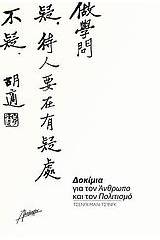 做學問
疑,待人要在有疑處
不疑.
胡適
Δοκίμια
για τον Άνθρωπο
και τον Πολιτισμό